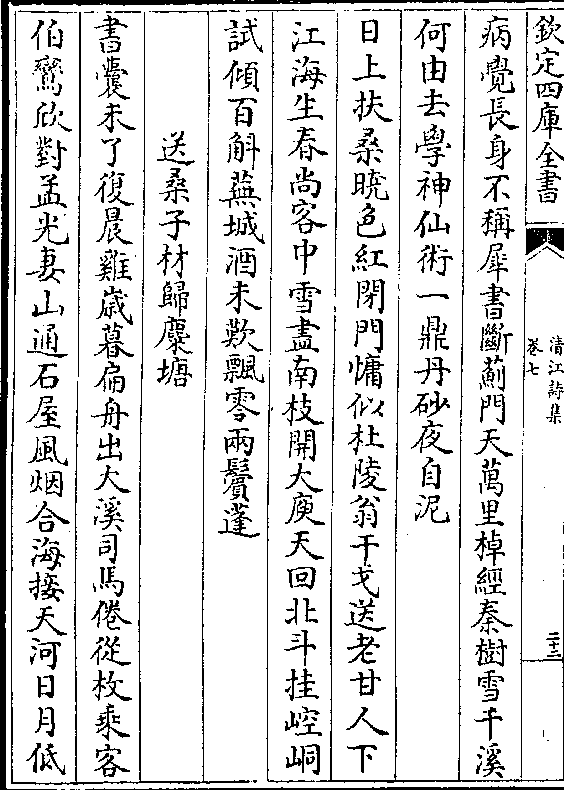 欽定四庫全書
清江詩集
卷七
二十三
病覺長身不稱犀書斷薊門天萬里棹經秦樹雪千溪
何由去學神仙術一鼎丹砂夜自泥
日上扶桑曉色紅閉門慵似杜陵翁干戈送老甘人下
江海生春尚客中雪盡南枝開大庾天回北斗挂崆峒
試傾百斛蕪城酒未歎飄零兩鬢蓬
送桑子材歸麋塘
書囊未了復晨雞歲暮扁舟出大溪司馬倦從枚乘客
伯鸞欣對孟光妻山通石屋風烟合海接天河日月低